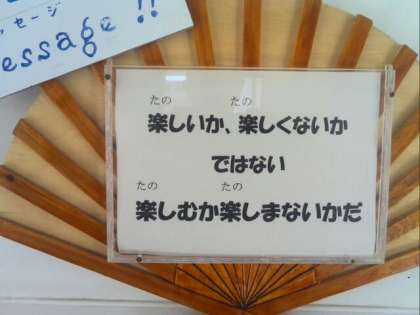 セージ
essage !!
たの たの
楽しいか、楽しくないか
ではない
たの たの
楽しむか楽しまないかだ